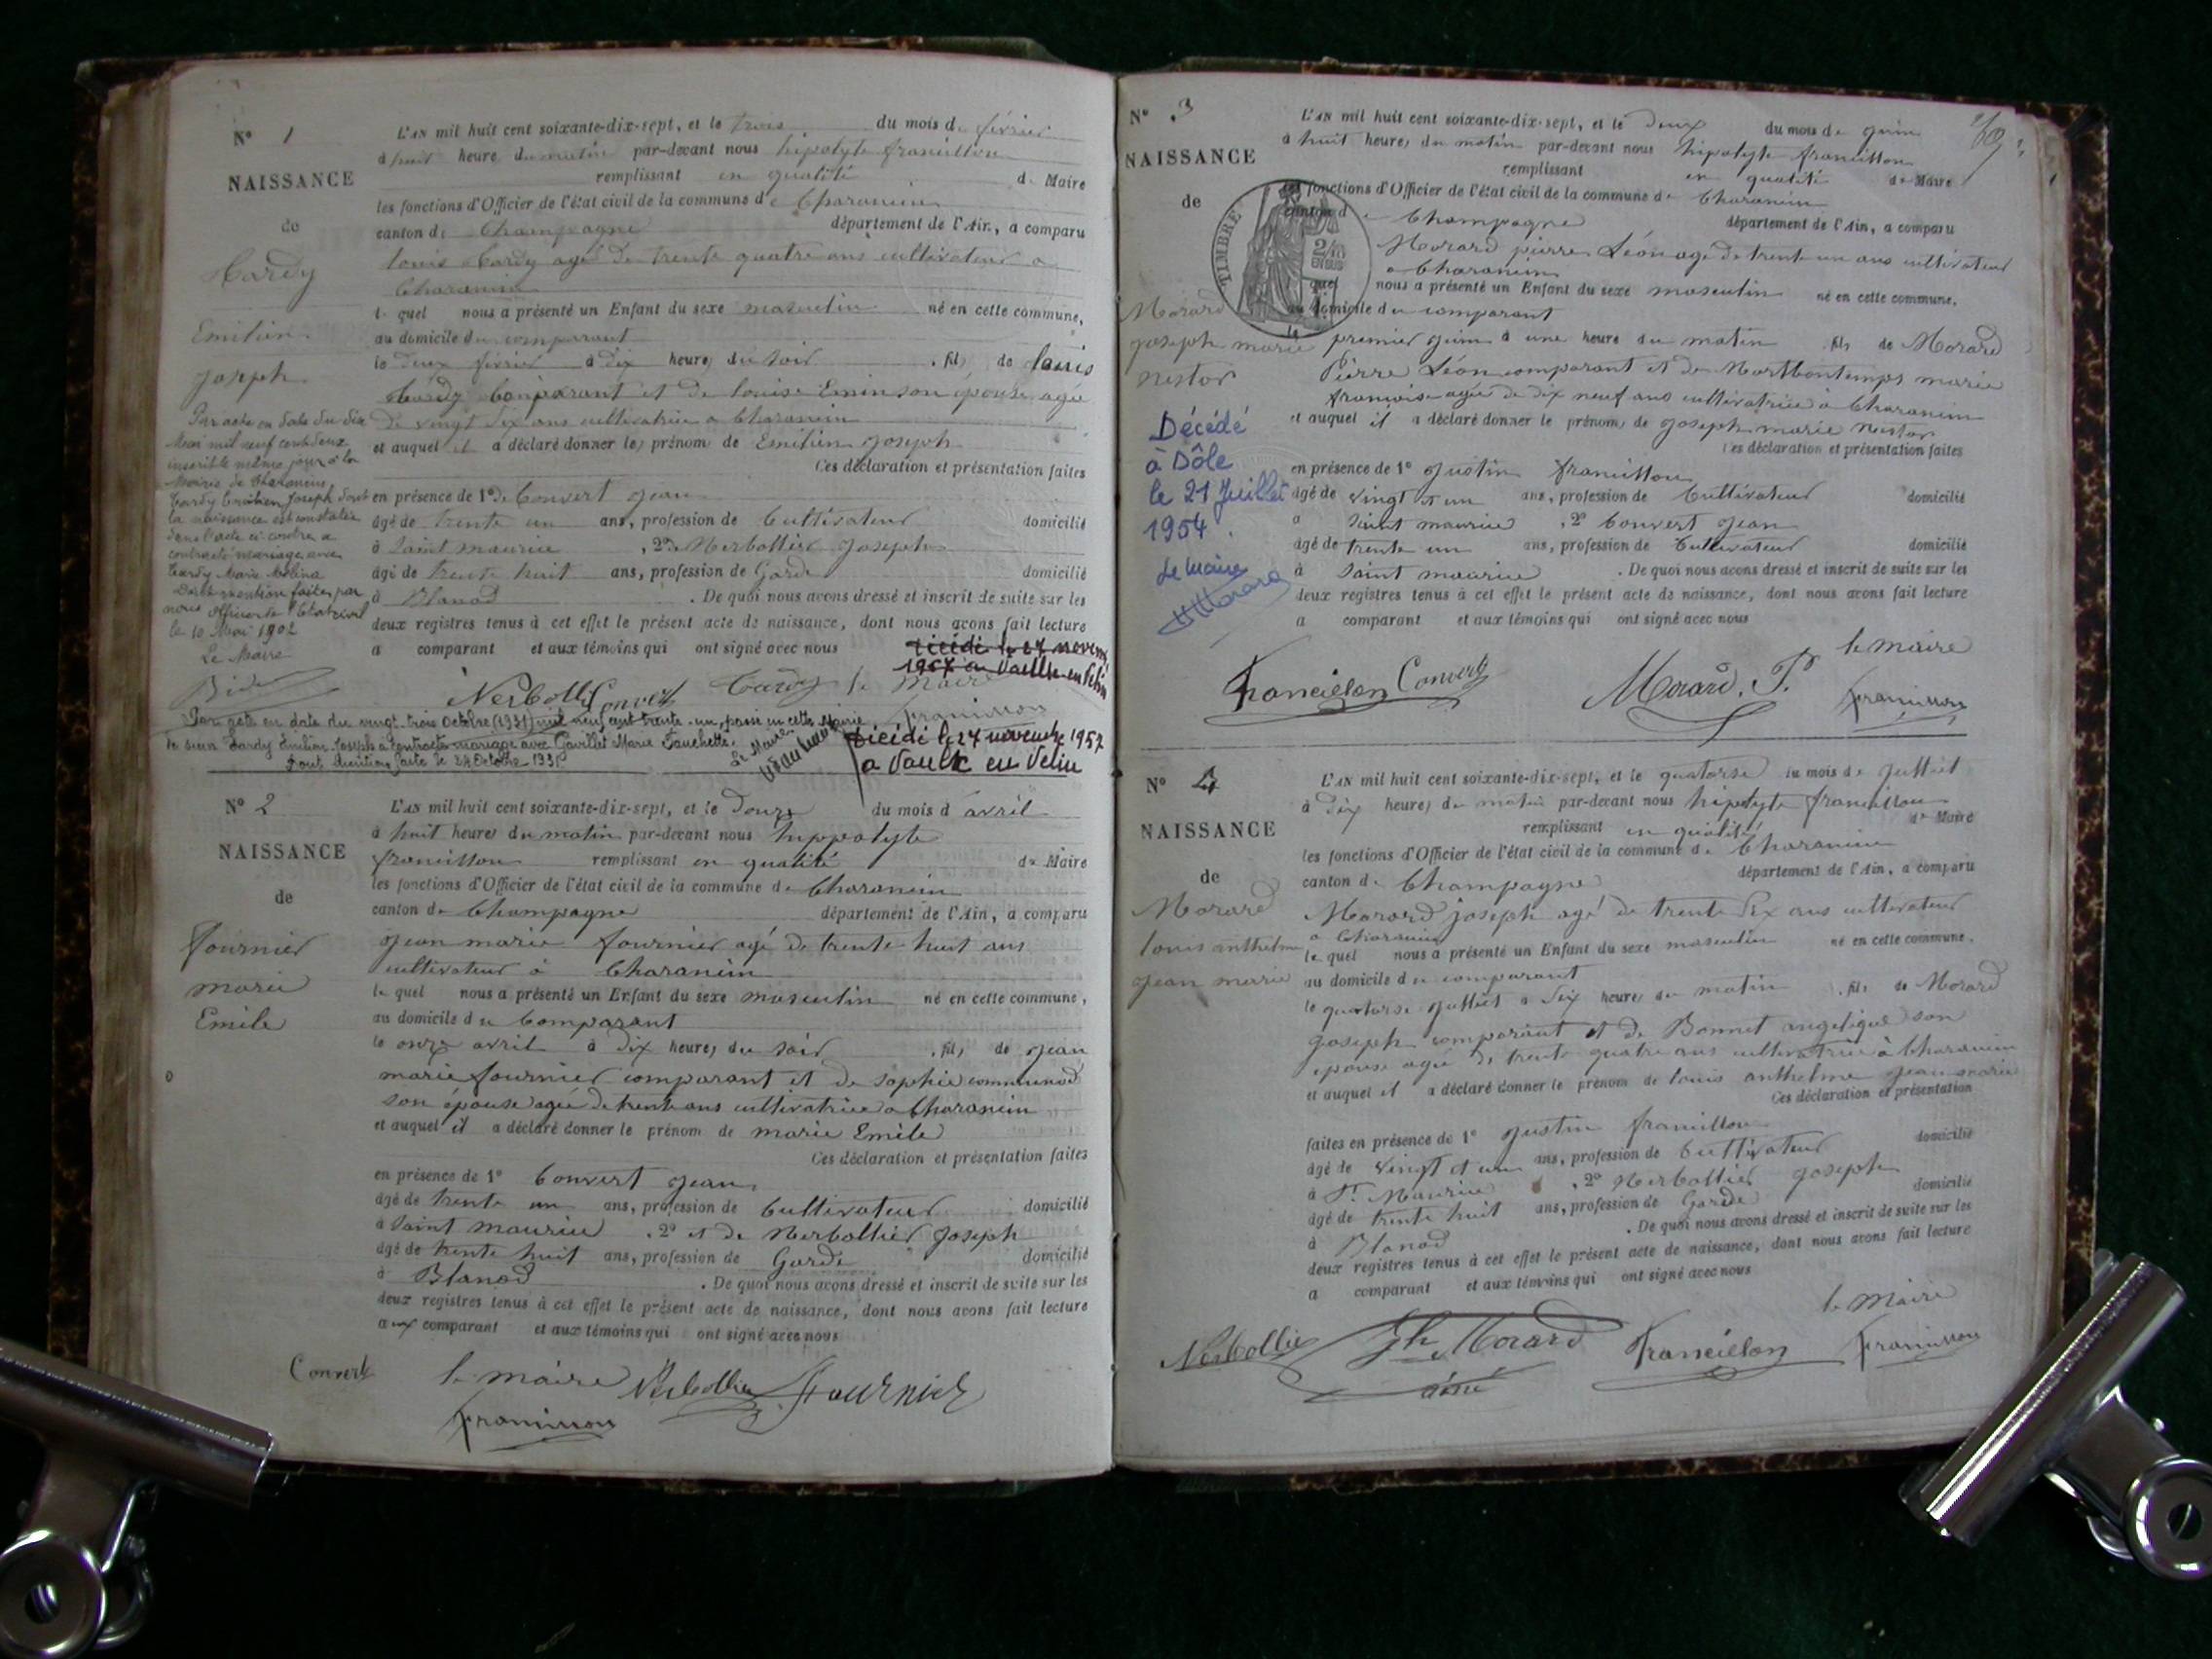 N° 1
NAISSANCE
de
Tardy
Emilien
Joseph
Par acte en date du dix
Mai mil neuf cent deux
inscrit le même jour à la
Mairie de Charancin
Tardy Emilien Joseph dont
la naissance est constatée
dans l'acte ci-contre a
contracté mariage avec
Tardy Marie Mélina
Dont mention faite par
nous officier de l'Etat civil
le 10 Mai 1902
Le Maire
L'AN mil huit cent soixante-dix-sept, et le trois du mois de février
à huit heure du matin par-devant nous hipolyte francillon
remplissant en qualité de Maire
les fonctions d'Officier de l'état civil de la commune de Charancin
canton de Champagne département de l'Ain, a comparu
louis Tardy agé de trente quatre ans cultivateur a
Charancin
lequel nous a présenté un Enfant du sexe masculin né en cette commune,
au domicile du comparant
le deux février à dix heures du soir, fils de louis
Tardy Comparant et de louise Emin son épouse agée
de vingt six ans cultivatrice a Charancin
et auquel il a déclaré donner les prénom de Emilien joseph
Ces déclaration et présentation faites
en présence de 1° de Convert jean
âgé de trente un ans, profession de Cultivateur domicilié
à Saint maurice, 2° de Nerbollier Joseph
âgé de trente huit ans, profession de Garde domicilié
à Blanod. De quoi nous avons dressé et inscrit de suite sur les
deux registres tenus à cet effet le présent acte de naissance, dont nous avons fait lecture
a comparant et aux témoins qui ont signé avec nous
Décédé le 24 novem
1957 a Vaulx en Velin
Nerbollier Convert Tardy le Maire
francillon
Par acte en date du vingt-trois Octobre (1931) mil neuf cent trente-un, passé en cette Mairie
le sieur Tardy Emilien Joseph a contracté mariage avec Gavillet Marie Fanchette.
Dont Mention faite le 24 Octobre 1931
Le Maire
Décédé le 24 novembre 1957
a Vaulx en Velin
N° 2
NAISSANCE
de
fournier
marie
Emile
L'AN mil huit cent soixante-dix-sept, et le Douze du mois d avril
à huit heures du matin par-devant nous hippolyte
francillon remplissant en qualité de Maire
les fonctions d'Officier de l'état civil de la commune de Charancin
canton de Champagne département de l'Ain, a comparu
jean marie fournier agé de trente huit ans
cultivateur à Charancin
lequel nous a présenté un Enfant du sexe masculin né en cette commune,
au domicile du Comparant
le onze avril à dix heures du soir, fils de jean
marie fournier comparant et de sophie communod
son épouse agée de trente ans cultivatrice a Charancin
et auquel il a déclaré donner le prénom de marie Emile
Ces déclaration et présentation faites
en présence de 1° Convert jean
âgé de trente un ans, profession de Cultivateur domicilié
à Saint maurice, 2° et de Nerbollier joseph
âgé de trente huit ans, profession de Garde domicilié
à Blanod. De quoi nous avons dressé et inscrit de suite sur les
deux registres tenus à cet effet le présent acte de naissance, dont nous avons fait lecture
aux comparant et aux témoins qui ont signé avec nous
Convert le maire Nerbollier fournier
francillon
N° 3
NAISSANCE
de
Morard
joseph marie
nestor
Décédé
à Dôle
le 21 Juillet
1954.
Le Maire
HMorard
TIMBRE
L'AN mil huit cent soixante-dix-sept, et le deux du mois de juin
à huit heures du matin par-devant nous hipolyte francillon
remplissant en qualité de Maire
les fonctions d'Officier de l'état civil de la commune de Charancin
canton de Champagne département de l'Ain, a comparu
Morard pierre Léon agé de trente un ans cultivateur
a Charancin
lequel nous a présenté un Enfant du sexe masculin né en cette commune,
au domicile du comparant
le premier juin à une heure du matin, fils de Morard
Pierre Léon comparant et de Montbontemps marie
francoise agée de dix neuf ans cultivatrice à Charancin
et auquel il a déclaré donner le prénom de joseph marie Nestor
Ces déclaration et présentation faites
en présence de 1° justin francillon
âgé de vingt et un ans, profession de Cultivateur domicilié
à Saint maurice, 2° Convert jean
âgé de trente un ans, profession de Cultivateur domicilié
à Saint maurice. De quoi nous avons dressé et inscrit de suite sur les
deux registres tenus à cet effet le présent acte de naissance, dont nous avons fait lecture
a comparant et aux témoins qui ont signé avec nous
le maire
Francillon Convert Morard. P. francillon
N° 4
NAISSANCE
de
Morard
louis anthelme
jean marie
L'AN mil huit cent soixante-dix-sept, et le quatorse du mois de juillet
à dix heures du matin par-devant nous hipolyte francillon
remplissant en qualité de Maire
les fonctions d'Officier de l'état civil de la commune de Charancin
canton de Champagne département de l'Ain, a comparu
Morard joseph agé de trente six ans cultivateur
a Charancin
lequel nous a présenté un Enfant du sexe masculin né en cette commune.
au domicile du comparant
le quatorse juillet a six heures du matin, fils de Morard
joseph comparant et de Bonnet angelique son
epouse agée de trente quatre ans cultivatrice à Charancin
et auquel il a déclaré donner le prénom de louis anthelme jean marie
Ces déclaration et présentation
faites en présence de 1° justin francillon
âgé de vingt et un ans, profession de Cultivateur domicilié
à St. Maurice, 2° Nerbollier joseph
âgé de trente huit ans, profession de Garde domicilié
à Blanod. De quoi nous avons dressé et inscrit de suite sur les
deux registres tenus à cet effet le présent acte de naissance, dont nous avons fait lecture
a comparant et aux témoins qui ont signé avec nous
le Maire
Nerbollier Jh Morard Francillon francillon
ainé